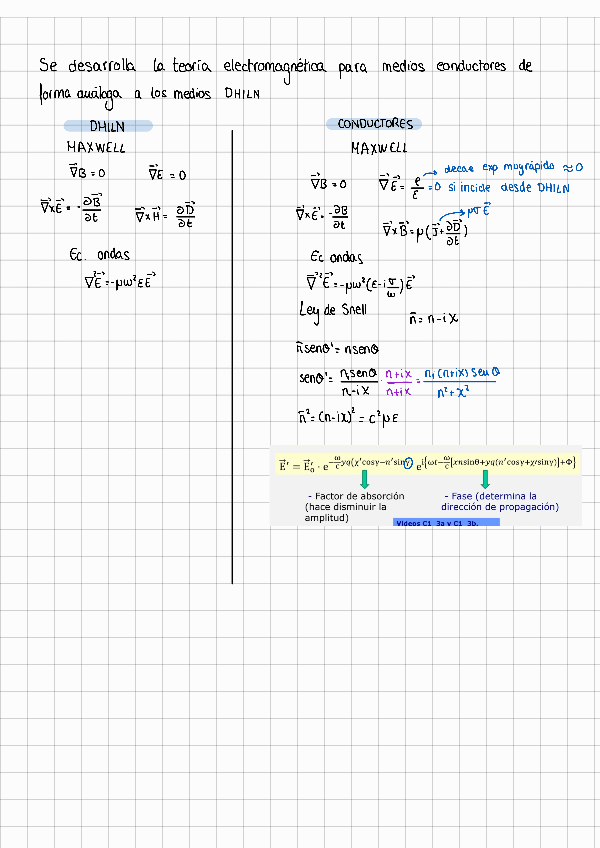 Se desarrolla la teoría electromagnética para medios conductores de
forma análoga a los medios DHILN
DHILN
MAXWELL
∇⃗B = 0 ∇⃗E = 0
∇⃗×E⃗ = -∂B⃗/∂t ∇⃗×H⃗ = ∂D⃗/∂t
Ec. ondas
∇⃗²E⃗ = -μω²εE⃗
CONDUCTORES
MAXWELL
decae exp muy rápido ≈ 0
∇⃗B = 0 ∇⃗E⃗ = ρ/ε = 0 si incide desde DHILN
μσE⃗
∇⃗×E⃗ = -∂B/∂t ∇⃗×B⃗ = μ(J⃗+∂D⃗/∂t)
Ec ondas
∇⃗²E⃗ = -μω²(ε-iσ/ω)E⃗
Ley de Snell
n̄ = n-iχ
n̄ senθ' = nsenθ
senθ' = n₁senθ/n-iχ · n+iχ/n+iχ = n₁(n+iχ) senθ/n²+χ²
n̄² = (n-iχ)² = c²με
E⃗' = E⃗'₀ · e^{-ω/c yq(χ'cosγ-n'sinγ)} e^{i{ωt-ω/c[xnsinθ+yq(n'cosγ+χ'sinγ)]+Φ}}
- Factor de absorción
(hace disminuir la
amplitud)
- Fase (determina la
dirección de propagación)
Videos C1_3a y C1_3b.